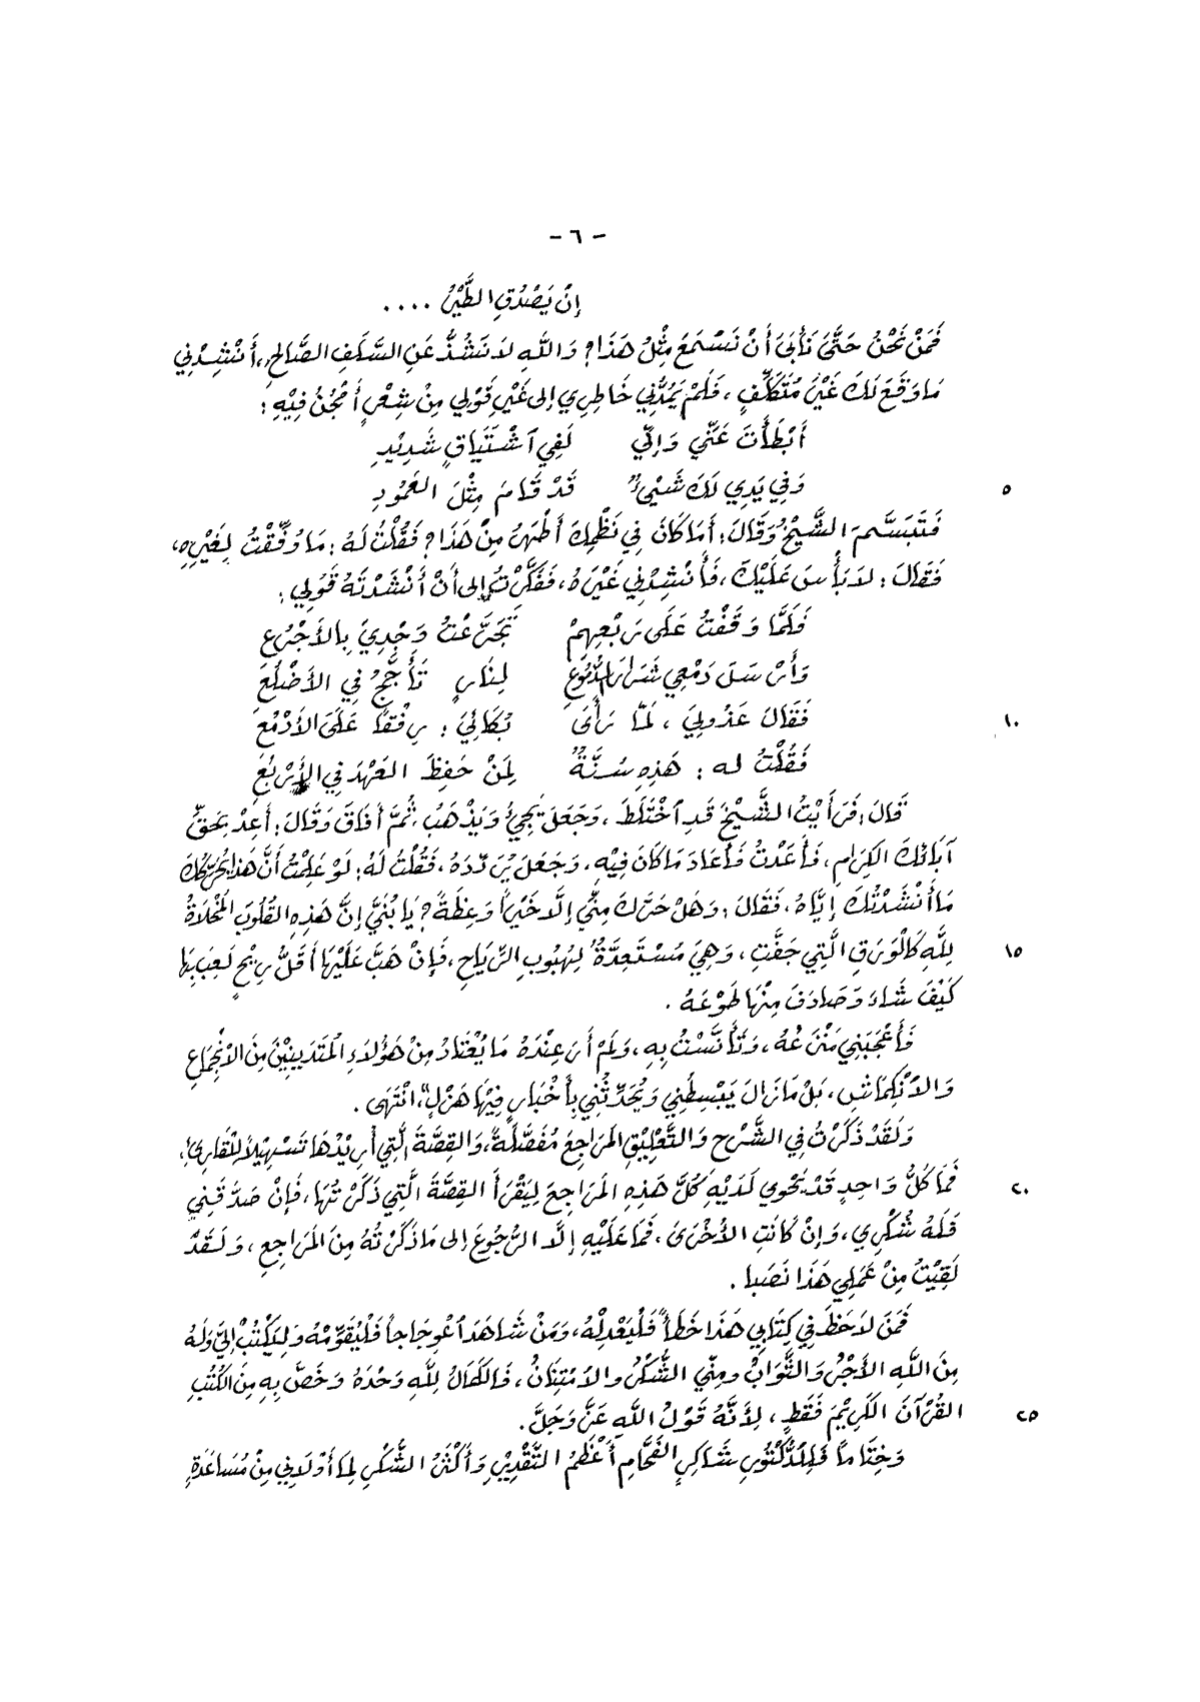 - ٦ -
إِنْ يَصْدُقِ الطَّيْرُ ....
فَمَنْ نَحْنُ حَتَّى نَأْبَى أَنْ نَسْمَعَ مِثْلُ هَذَا؟ وَاللَّهِ لَا نَشُذُّ عَنِ السَّلَفِ الصَّالِحِ، أَنْشِدْنِي
مَا وَقَعَ لَكَ غَيْرَ مُتَكَلِّفٍ، فَلَمْ يَمُدَّنِي خَاطِرِي إِلى غَيْرِ قَوْلي مِنْ شِعْرٍ أَمْجُنُ فِيْهِ :
أَبْطَأْتَ عَنِّي وَإِنِّي لَفِي ٱشْتِيَاقٍ شَدِيْدِ
وَفِي يَدِي لَكَ شَيْءٌ قَدْ قَامَ مِثْلَ العَمُودِ
٥
فَتَبَسَّمَ الشَّيْخُ وَقَالَ: أَمَا كَانَ فِي نَظْمِكَ أَطْهَرُ مِنْ هَذَا؟ فَقُلْتُ لَهُ : مَا وُفِّقْتُ لِغَيْرِهِ،
فَقَالَ : لَا بَأْسَ عَلَيْكَ، فَأَنْشِدْنِي غَيْرَهُ، فَفَكَّرْتُ إِلى أَنْ أَنْشَدْتَهُ قَوْلِي :
فَلَمَّا وَقَفْتُ عَلَى رَبْعِهِمْ تَجَرَّعْتُ وَجْدِيَ بِالأَجْرَعِ
وَأَرْسَلَ دَمْعِي شَرَارَ الدُّمُوعِ لِنَارٍ تَأَجَّجُ فِي الأَضْلُعِ
فَقَالَ عَذُولِيَ، لَمَّا رَأَى بُكَائِيَ : رِفْقاً عَلَى الأَدْمُعِ
١٠
فَقُلْتُ له : هَذِهِ سُنَّةٌ لِمَنْ حَفِظَ العَهْدَ فِي الأَرْبُعِ
قَالَ: فَرَأَيْتُ الشَّيْخَ قَدِ ٱخْتَلَطَ، وَجَعَلَ يَجِيءُ وَيَذْهَبُ، ثُمَّ أَفَاقَ وَقَالَ: أَعِدْ بِحَقِّ
آبَائِكَ الكِرَامِ، فَأَعَدْتُ فَأَعَادَ مَا كَانَ فِيْهِ، وَجَعَلَ يُرَدِّدُهُ، فَقُلْتُ لَهُ: لَوْ عَلِمْتُ أَنَّ هَذَا يُحَرِّكُكَ
مَا أَنْشَدْتُكَ إِيَّاهُ، فَقَالَ : وَهَلْ حَرَّكَ مِنِّي إِلَّا خَيْراً وَعِظَةً؟ يَا بُنَيَّ إِنَّ هَذِهِ القُلُوبَ المُخْلَاةُ
لِلَّهِ كَالْوَرَقِ الَّتِي جَفَّتِ، وَهِيَ مُسْتَعِدَّةٌ لِهُبُوبِ الرِّيَاحِ، فَإِنْ هَبَّ عَلَيْهَا أَقَلُّ رِيْحٍ لَعِبَ بِهَا
١٥
كَيْفَ شَاءَ وَصَادَفَ مِنْهَا طَوْعَهُ .
فَأَعْجَبَنِي مَنْزَعُهُ، وَتَأَنَّسْتُ بِهِ، وَلَمْ أَرَ عِنْدَهُ مَا يُعْتَادُ مِنْ هَؤُلَاءِ المُتَدَيِّنِيْنَ مِنَ الانْجِمَاعِ
وَالانْكِمَاشِ، بَلْ مَا زَالَ يَبْسِطُنِي وَيُحَدِّثُنِي بِأَخْبَارٍ فِيْهَا هَزْلٌ"، انْتَهَى .
وَلَقَدْ ذَكَرْتُ فِي الشَّرْحِ وَالتَّعْلِيْقِ المَرَاجِعَ مُفَصَّلَةً، وَالقِصَّةَ الَّتِي أُرِيْدُهَا تَسْهِيْلاً لِلْقَارِئِ،
فَمَا كُلُّ وَاحِدٍ قَدْ يَحْوِي لَدَيْهِ كُلَّ هَذِهِ المَرَاجِعَ لِيَقْرَأَ القِصَّةَ الَّتِي ذَكَرْتُهَا، فَإِنْ صَدَّقَنِي
٢٠
فَلَهُ شُكْرِي، وَإِنْ كَانَتِ الأُخْرَى، فَمَا عَلَيْهِ إِلَّا الرُّجُوعَ إِلى مَا ذَكَرْتُهُ مِنَ المَرَاجِعِ، وَلَقَدْ
لَقِيْتُ مِنْ عَمَلِي هَذَا نَصَبا .
فَمَنَ لَاحَظَ فِي كِتَابِي هَذَا خَطَأً فَلْيَعْدِلْهُ، وَمَنْ شَاهَدَ ٱعْوِجَاجاً فَلْيُقَوِّمْهُ وَلِيَكْتُبْ إِلَيَّ وَلَهُ
مِنَ اللَّهِ الأَجْرُ وَالثَّوَابُ ومِنِّي الشُّكْرُ والامْتِنَانُ، فَالكَمَالُ لِلَّهِ وَحْدَهُ وَخَصَّ بِهِ مِنَ الكُتُبِ
القُرْآنَ الكَرِيْمَ فَقَطِ، لِأَنَّهُ قَوْلُ اللَّهِ عَزَّ وَجَلَّ.
٢٥
وَخِتَاماً فَلِلدُّكْتُورِ شَاكِرِ الفَحَّامِ أَعْظَمُ التَّقْدِيْرِ وَأَكْثَرُ الشُّكْرِ لِمَا أَوْلَانِي مِنْ مُسَاعَدَةٍ،